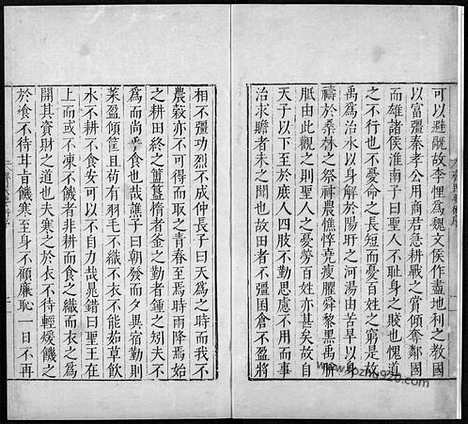 可以避饑故李悝為魏文侯作盡地利之教國
以富彊秦孝公用商君急耕戰之賞傾奪鄰國
而雄諸侯淮南子曰聖人不恥身之賤也愧道
之不行也不憂命之長短而憂百姓之窮是故
禹為治水以身解於陽盱之河湯由苦旱以身
禱於桑林之祭神農憔悴堯瘦臞舜黎黑禹胼
胝由此觀之則聖人之憂勞百姓亦甚矣故自
天子以下至於庶人四肢不勤思慮不用而事
治求贍者未之聞也故田者不彊囷倉不盈將
相不彊功烈不成仲長子曰天為之時而我不
農穀亦不可得而取之青春至焉時雨降焉始
之耕田終之簠簋惰者釜之勤者鍾之矧夫不
為而尚乎食也哉譙子曰朝發而夕異宿勤則
菜盈傾筐且苟有羽毛不織不衣不能茹草飲
水不耕不食安可以不自力哉晁錯曰聖王在
上而民不凍不饑者非能耕而食之織而衣之為
開其資財之道也夫寒之於衣不待輕煖饑之
於食不待甘旨饑寒至身不顧廉恥一日不再